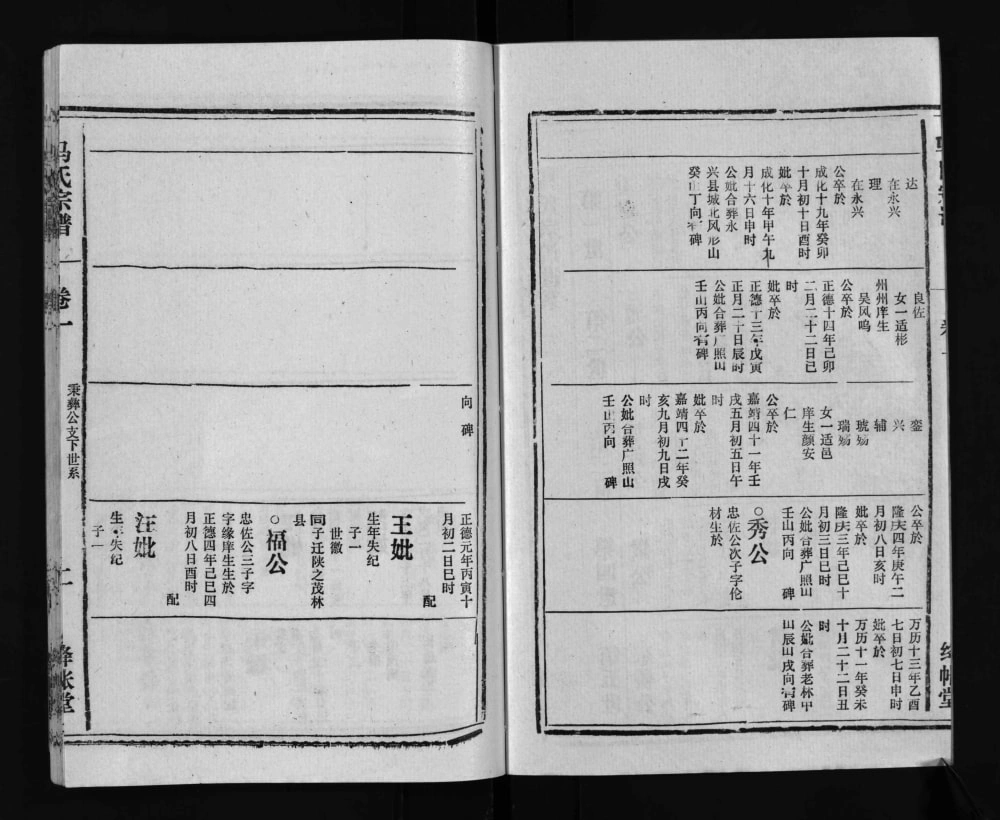 达
在永兴
理
在永兴
公卒於
成化十九年癸卯
十月初十日酉时
妣卒於
成化十年甲午九
月十六日申时
公妣合葬永
兴县城北风形山
癸山丁向有碑
良佐
女一适彬
州州庠生
吴风鸣
公卒於
正德十四年己卯
二月二十二日巳
时
妣卒於
正德十三年戊寅
正月二十日辰时
公妣合葬广照山
壬山丙向有碑
銮
兴
辅
琥殇
瑞殇
女一适邑
庠生颜安
仁
公卒於
嘉靖四十一年壬
戌五月初五日午
时
妣卒於
嘉靖四十二年癸
亥九月初九日戌
时
公妣合葬广照山
壬山丙向 碑
公卒於
隆庆四年庚午二
月初八日亥时
妣卒於
隆庆三年己巳十
月初三日巳时
公妣合葬广照山
壬山丙向 碑
○秀公
忠佐公次子字伦
材生於
万历十三年乙酉
七日初七日申时
妣卒於
万历十一年癸未
十月二十二日丑
时
公妣合葬老林甲
山辰山戌向有碑
绛帐堂
向 碑
正德元年丙寅十
月初二日巳时
配
王妣
生年失纪
子一
世徽
同子迁陕之茂林
县
○福公
忠佐公三子字
字缘庠生生於
正德四年己巳四
月初八日酉时
配
汪妣
生年失纪
子一
马氏宗谱
卷一
秉彝公支下世系
二
绛帐堂